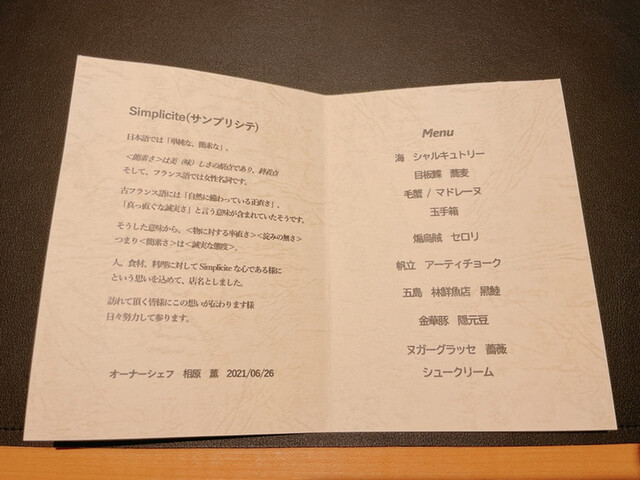 Simplicite(サンプリシテ)
日本語では「単純な、簡素な」。
<簡素さ>は美（味）しさの原点であり、終着点
そして、フランス語では女性名詞です。
古フランス語には「自然に備わっている正直さ」、
「真っ直ぐな誠実さ」と言う意味が含まれていたそうです。
そうした意味から、<物に対する率直さ><淀みの無さ>
つまり<簡素さ>は<誠実な態度>。
人、食材、料理に対して Simplicite な心である様に
という思いを込めて、店名としました。
訪れて頂く皆様にこの想いが伝わります様
日々努力して参ります。
オーナーシェフ 相原 薫 2021/06/26
Menu
海 シャルキュトリー
目板鰈 蕎麦
毛蟹 / マドレーヌ
玉手箱
煽烏賊 セロリ
帆立 アーティチョーク
五島 林鮮魚店 黒鮭
金華豚 隠元豆
ヌガーグラッセ 薔薇
シュークリーム